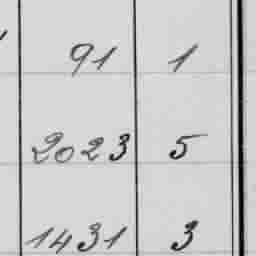 91 1
2023 5
1431 3